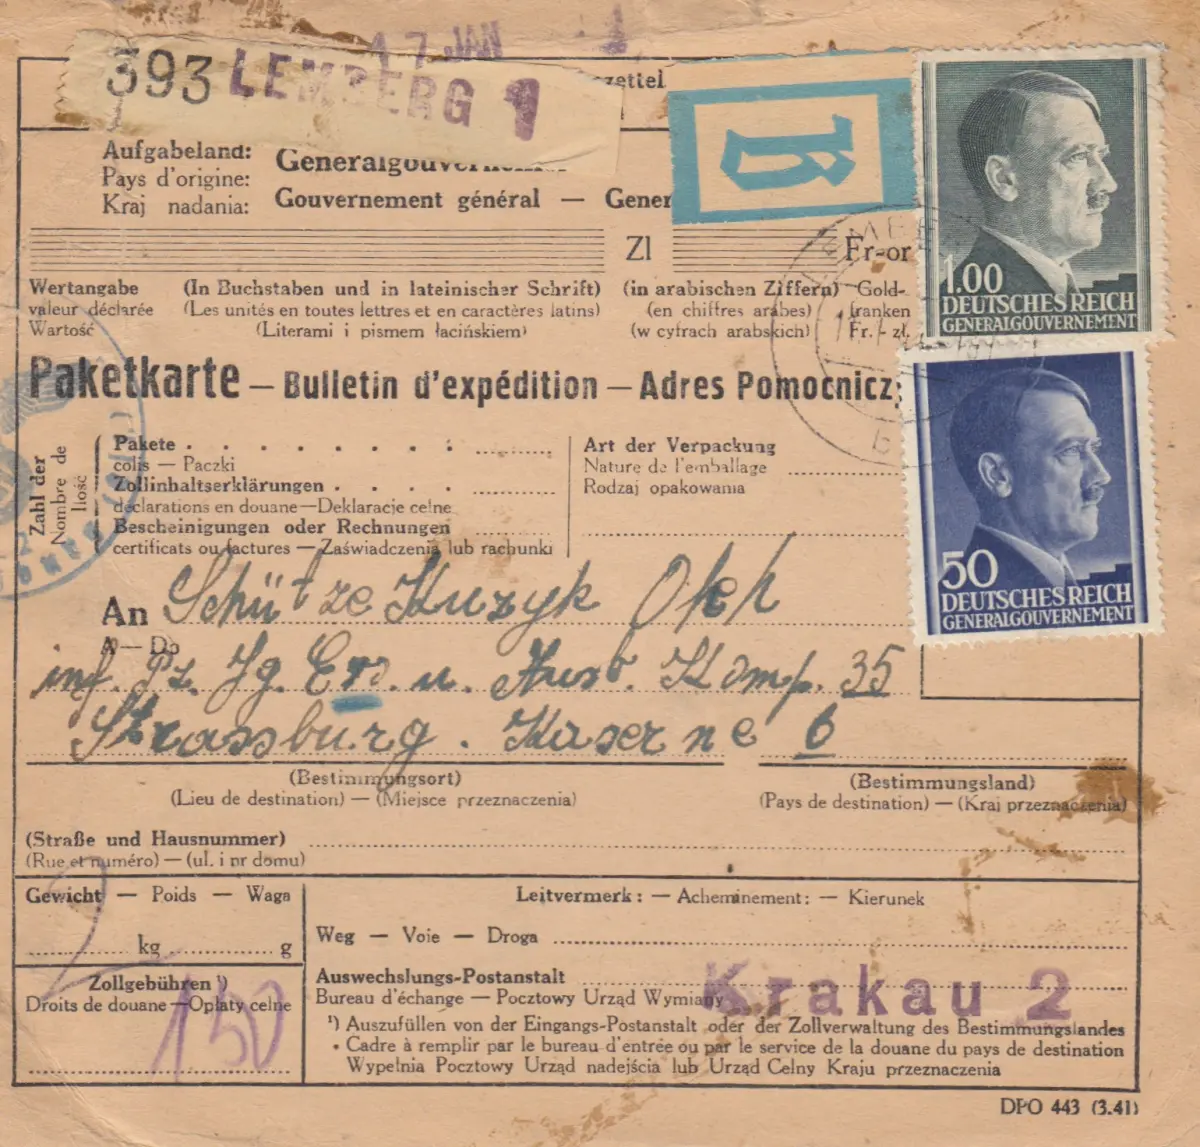 17 JAN
393 LEMBERG 1
zettel
Aufgabeland:
Pays d'origine:
Kraj nadania:
Gouvernement général — Gener
Zl
Fr-or
Wertangabe
valeur déclarée
Wartość
(In Buchstaben und in lateinischer Schrift)
(Les unités en toutes lettres et en caractères latins)
(Literami i pismem łacińskiem)
(in arabischen Ziffern)
(en chiffres arabes)
(w cyfrach arabskich)
Gold-
franken
Fr. - zł.
1.00
DEUTSCHES REICH
GENERALGOUVERNEMENT
Paketkarte — Bulletin d'expédition — Adres Pomocnicz
Zahl der
Nombre de
Ilość
Pakete
colis — Paczki
Zollinhaltserklärungen
déclarations en douane — Deklaracje celne
Bescheinigungen oder Rechnungen
certificats ou factures — Zaświadczenia lub rachunki
Art der Verpackung
Nature de l'emballage
Rodzaj opakowania
50
DEUTSCHES REICH
GENERALGOUVERNEMENT
An Schütze Kuzyk Oleh
A — Do
inf. Pz. Jg. Ers. u. Ausb. Komp. 35
Strassburg. Kaserne 6
(Bestimmungsort)
(Lieu de destination) — (Miejsce przeznaczenia)
(Bestimmungsland)
(Pays de destination) — (Kraj przeznaczenia)
(Straße und Hausnummer)
(Rue et numéro) — (ul. i nr domu)
Gewicht — Poids — Waga
kg g
Leitvermerk: — Acheminement: — Kierunek
Weg — Voie — Droga
Zollgebühren ¹)
Droits de douane — Opłaty celne
150
Auswechslungs-Postanstalt
Bureau d'échange — Pocztowy Urząd Wymiany
Krakau 2
¹) Auszufüllen von der Eingangs-Postanstalt oder der Zollverwaltung des Bestimmungslandes
• Cadre à remplir par le bureau d'entrée ou par le service de la douane du pays de destination
Wypełnia Pocztowy Urząd nadejścia lub Urząd Celny Kraju przeznaczenia
DPO 443 (3.41)